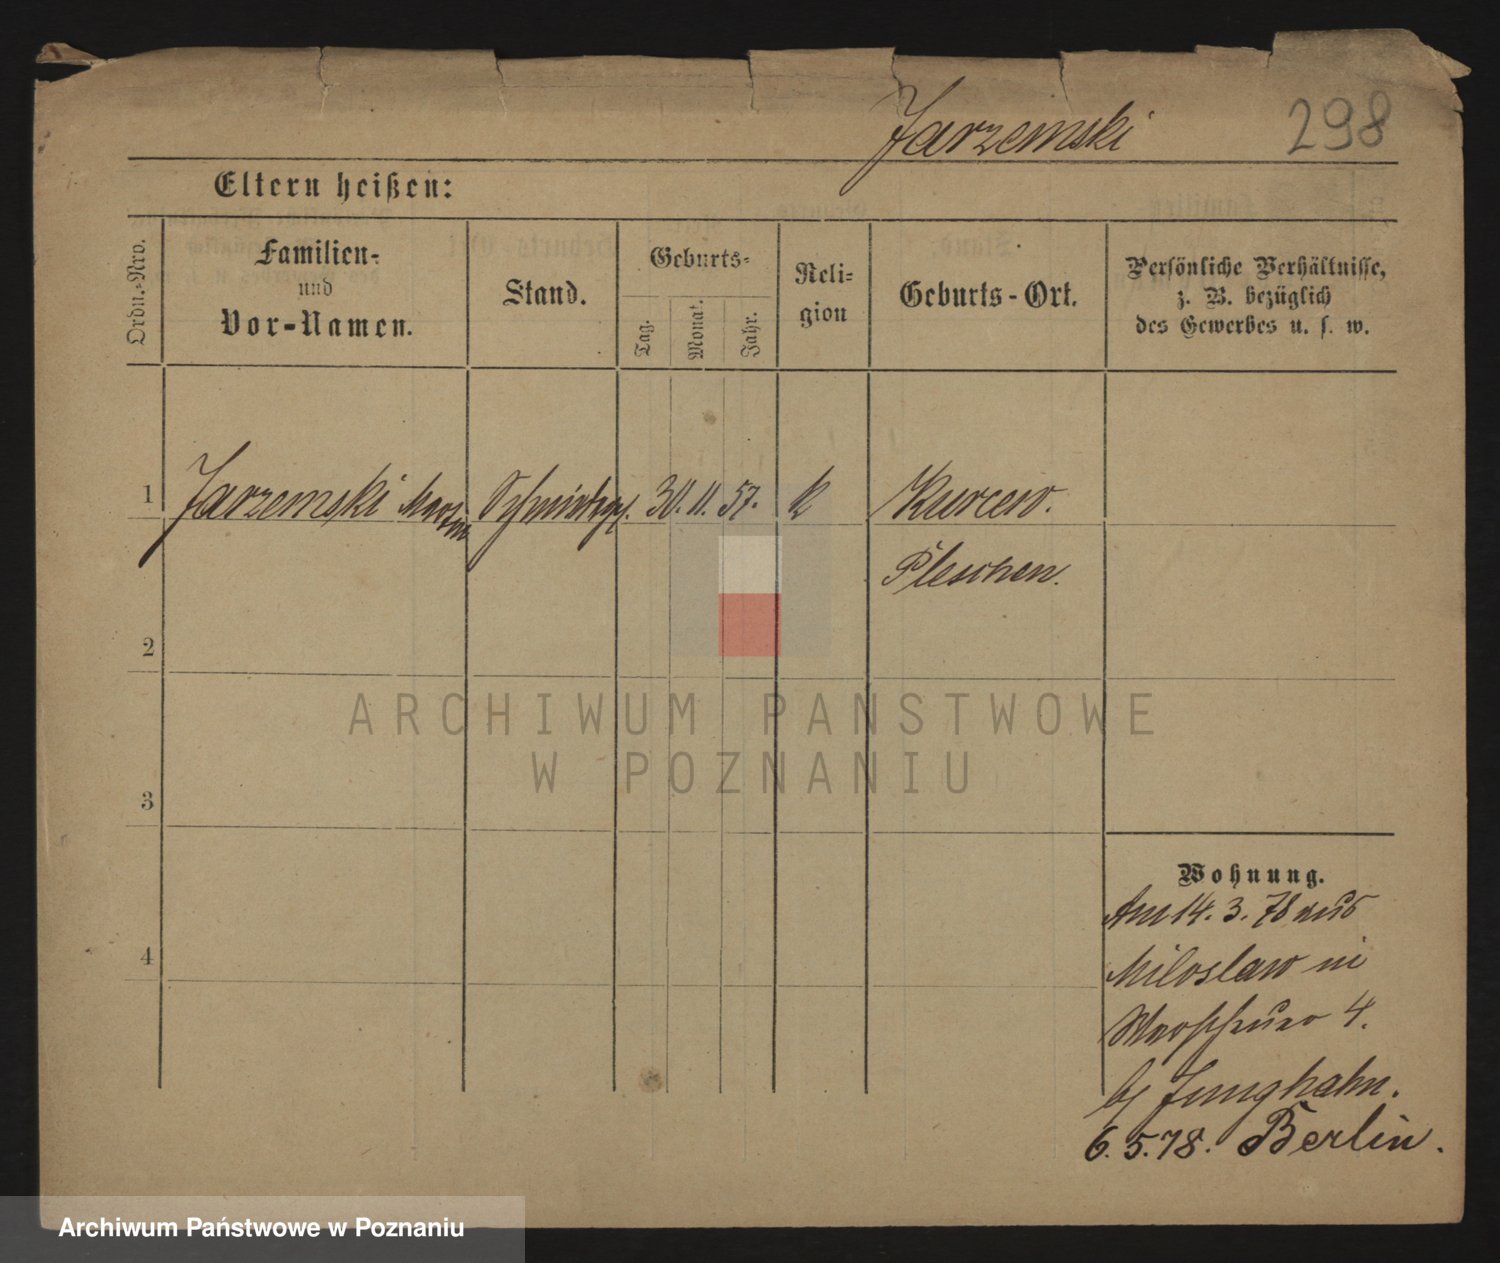 Jarzemski 298
Eltern heißen:
Ordn.-Nro.
Familien-
und
Vor-Namen.
Stand.
Geburts-
Tag.
Monat.
Jahr.
Reli-
gion
Geburts-Ort.
Persönliche Verhältnisse,
z. B. bezüglich
des Gewerbes u. s. w.
1 Jarzemski Martin Schmiedeges. 30. 11. 57. k Kurcew.
Pleschen.
2
ARCHIWUM PAŃSTWOWE
W POZNANIU
3
Wohnung.
Am 14. 3. 78 aus
4
Miloslaw in
4.
b/ Junghahn.
6. 5. 78. Berlin.
Archiwum Państwowe w Poznaniu